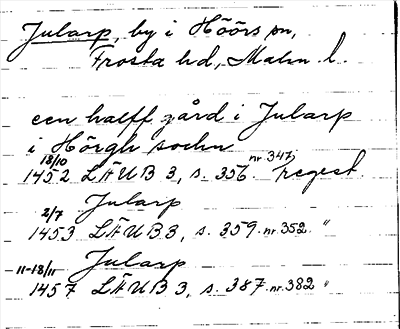 Jularp, by i Höörs sn,
Frosta hd, Malm. l.
een halff gård i Jularp
i Hörgh sochn
18/10 1452 LÄUB 3, s. 356. nr. 347, regest.
Jularp
2/7 1453 LÄUB 3, s. 359. nr. 352. "
Jularp
11-18/11 1457 LÄUB 3, s. 387. nr. 382 "